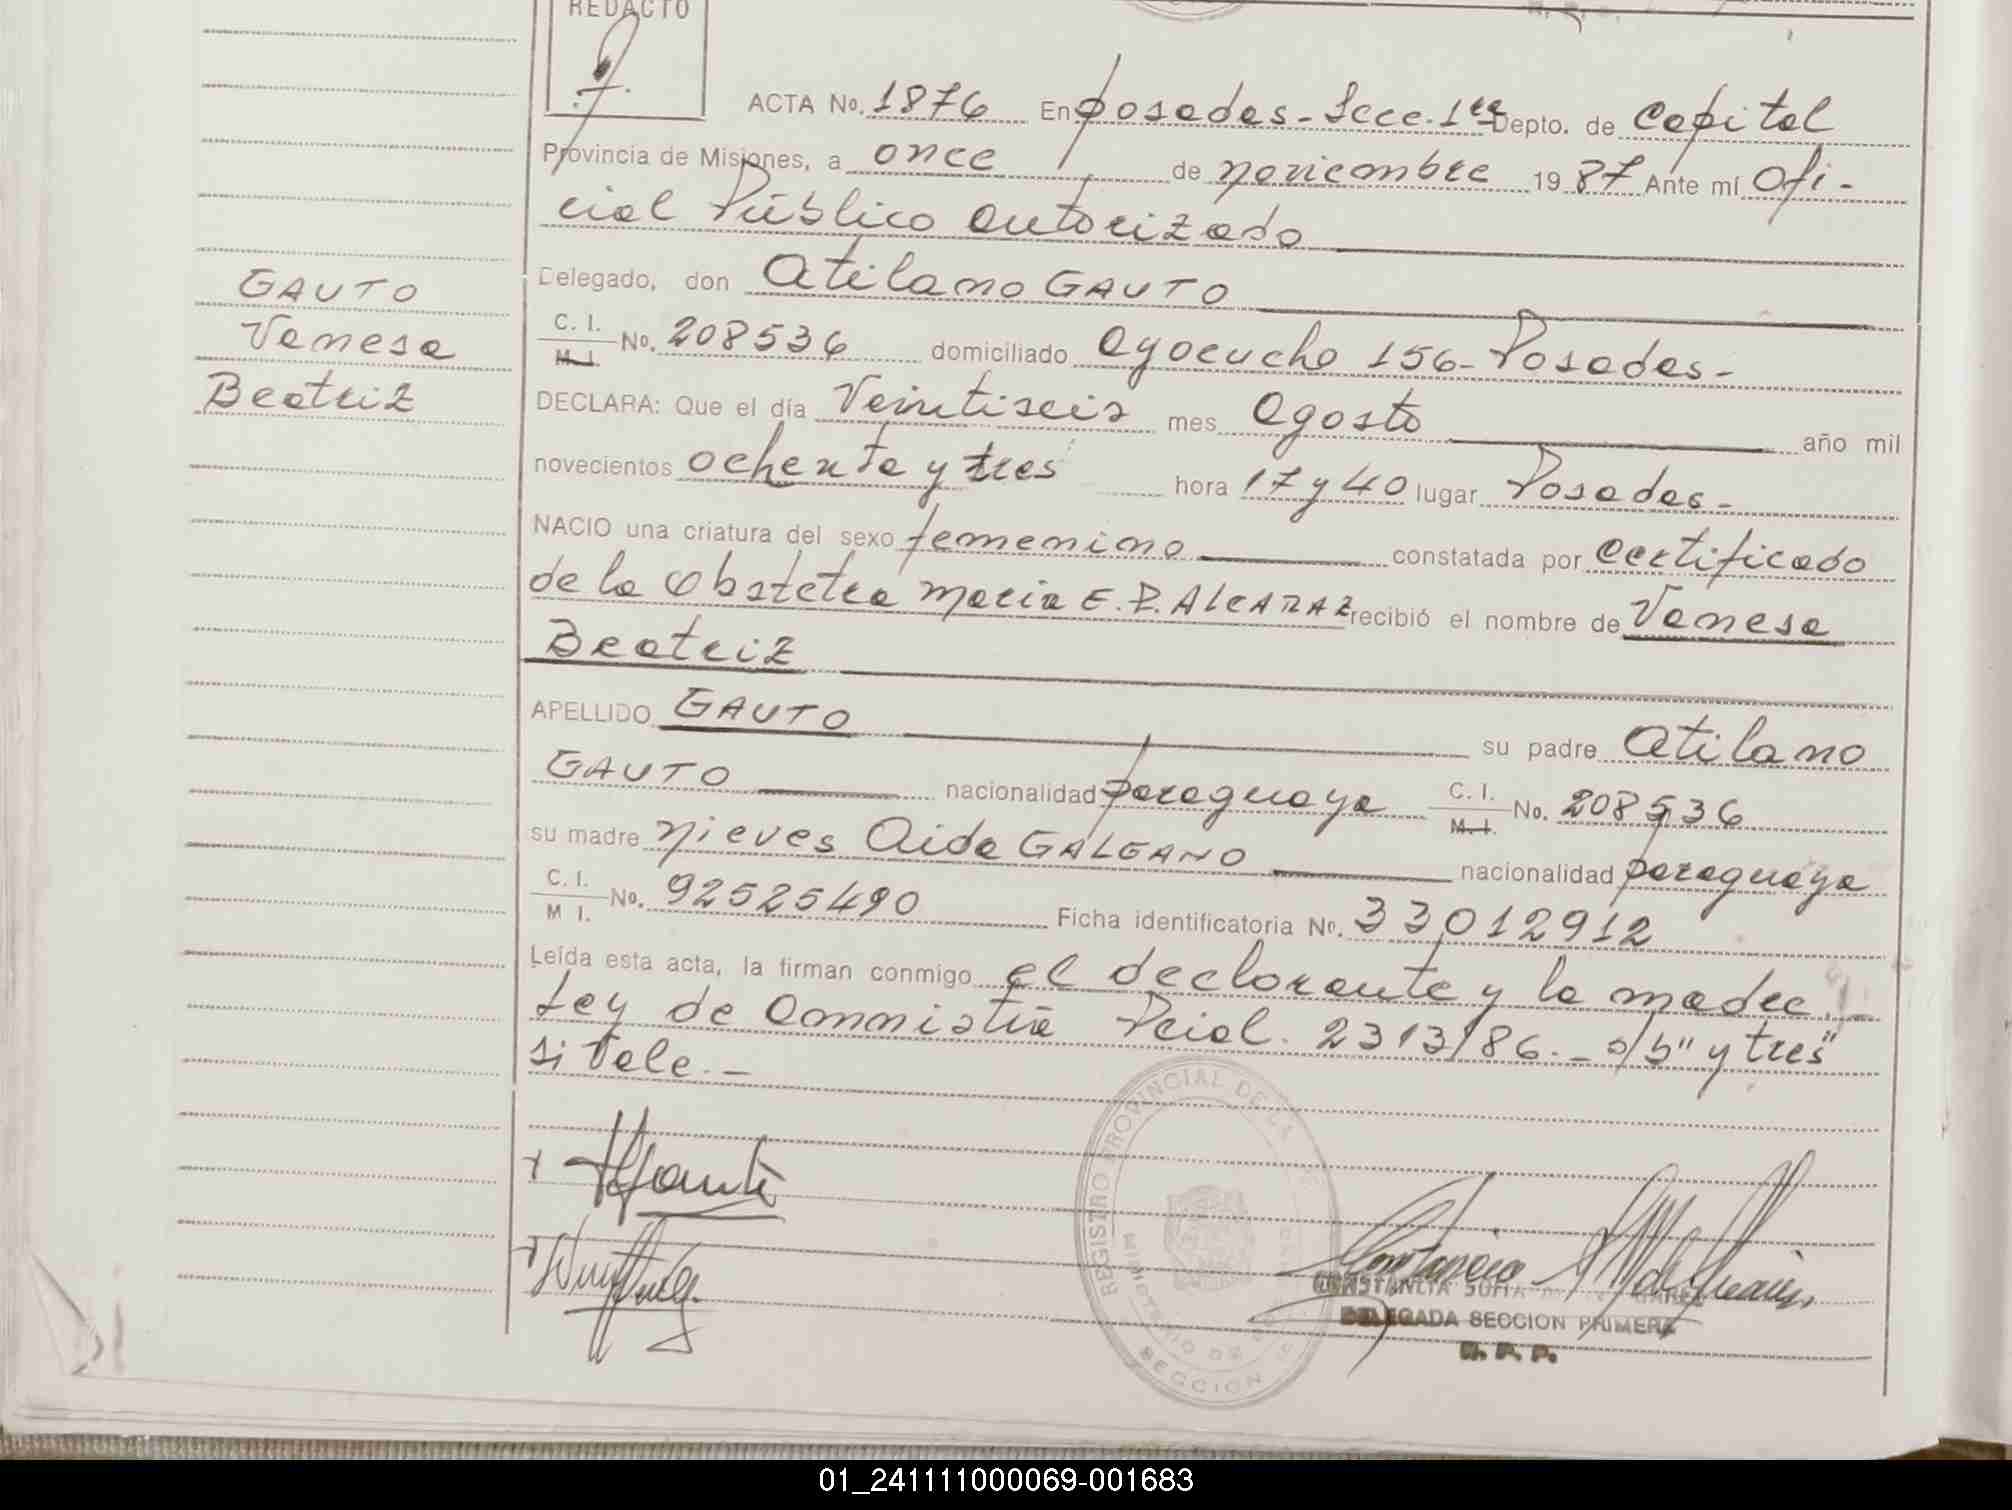 REDACTO
ACTA No. 1876 En Posadas - Secc. 1ra Depto. de Capital
Provincia de Misiones, a once de noviembre 1987 Ante mí Ofi-
cial Público autorizado
Delegado, don Atilano GAUTO
GAUTO
Vanesa
Beatriz
C. I.
M. I. No. 208536 domiciliado Ayacucho 156 - Posadas -
DECLARA: Que el día Veintiseis mes Agosto año mil
novecientos ochenta y tres hora 17 y 40 lugar Posadas -
NACIO una criatura del sexo femenino constatada por certificado
de la Obstetra Maria E. P. ALCARAZ recibió el nombre de Vanesa
Beatriz
APELLIDO GAUTO su padre Atilano
GAUTO nacionalidad paraguaya C. I.
M. I. No. 208536
su madre Nieves Aida GALEANO nacionalidad paraguaya
C. I.
M I. No. 92525490 Ficha identificatoria No. 33012912
Leída esta acta, la firman conmigo el declarante y la madre.-
Ley de Amnistía Pcial. 2313/86.- s/b" y tres"
si Vale.-
REGISTRO PROVINCIAL DE LA
MINISTERIO DE
SECCION
CONSTANCIA SOFIA
DELEGADA SECCION PRIMERA
R. P. P.
01_241111000069-001683